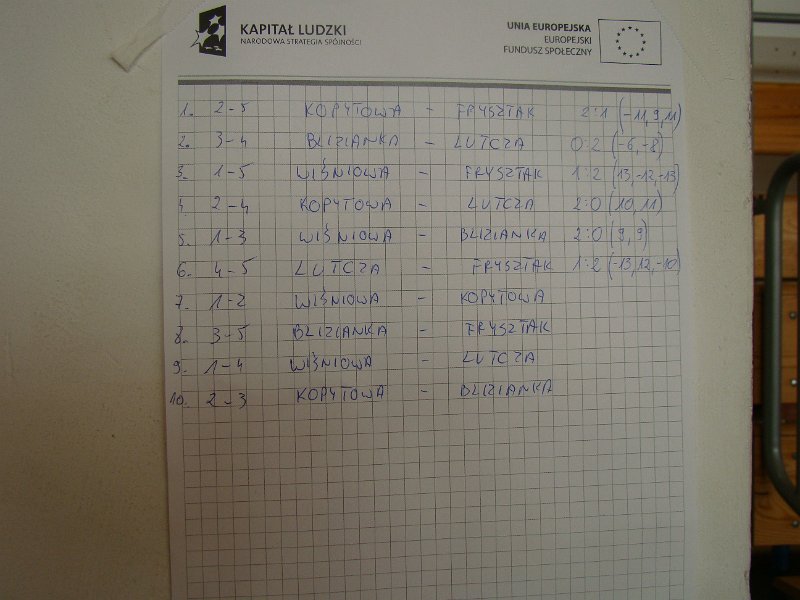 KAPITAŁ LUDZKI
NARODOWA STRATEGIA SPÓJNOŚCI
UNIA EUROPEJSKA
EUROPEJSKI
FUNDUSZ SPOŁECZNY
1. 2-5 KOPYTOWA - FRYSZTAK 2:1 (-11, 9, 11)
2. 3-4 BLIZIANKA - LUTCZA 0:2 (-6, -8)
3. 1-5 WIŚNIOWA - FRYSZTAK 1:2 (13, -12, -13)
4. 2-4 KOPYTOWA - LUTCZA 2:0 (10, 11)
5. 1-3 WIŚNIOWA - BLIZIANKA 2:0 (9, 9)
6. 4-5 LUTCZA - FRYSZTAK 1:2 (-13, 12, -10)
7. 1-2 WIŚNIOWA - KOPYTOWA
8. 3-5 BLIZIANKA - FRYSZTAK
9. 1-4 WIŚNIOWA - LUTCZA
10. 2-3 KOPYTOWA - BLIZIANKA